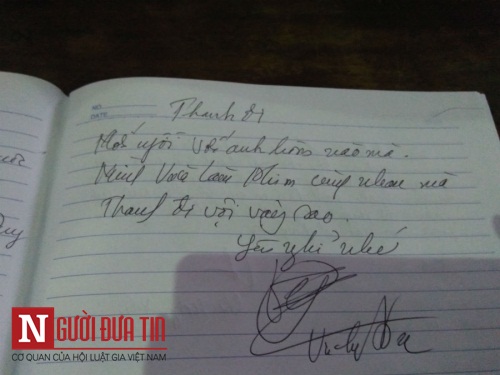 NO.
DATE
Thanh ơi
Mới ngồi với anh hôm nào mà.
Mình vừa làm phim cùng nhau mà
Thanh đi vội vàng sao.
Yên nghỉ nhé
NGƯỜI ĐƯA TIN
CƠ QUAN CỦA HỘI LUẬT GIA VIỆT NAM